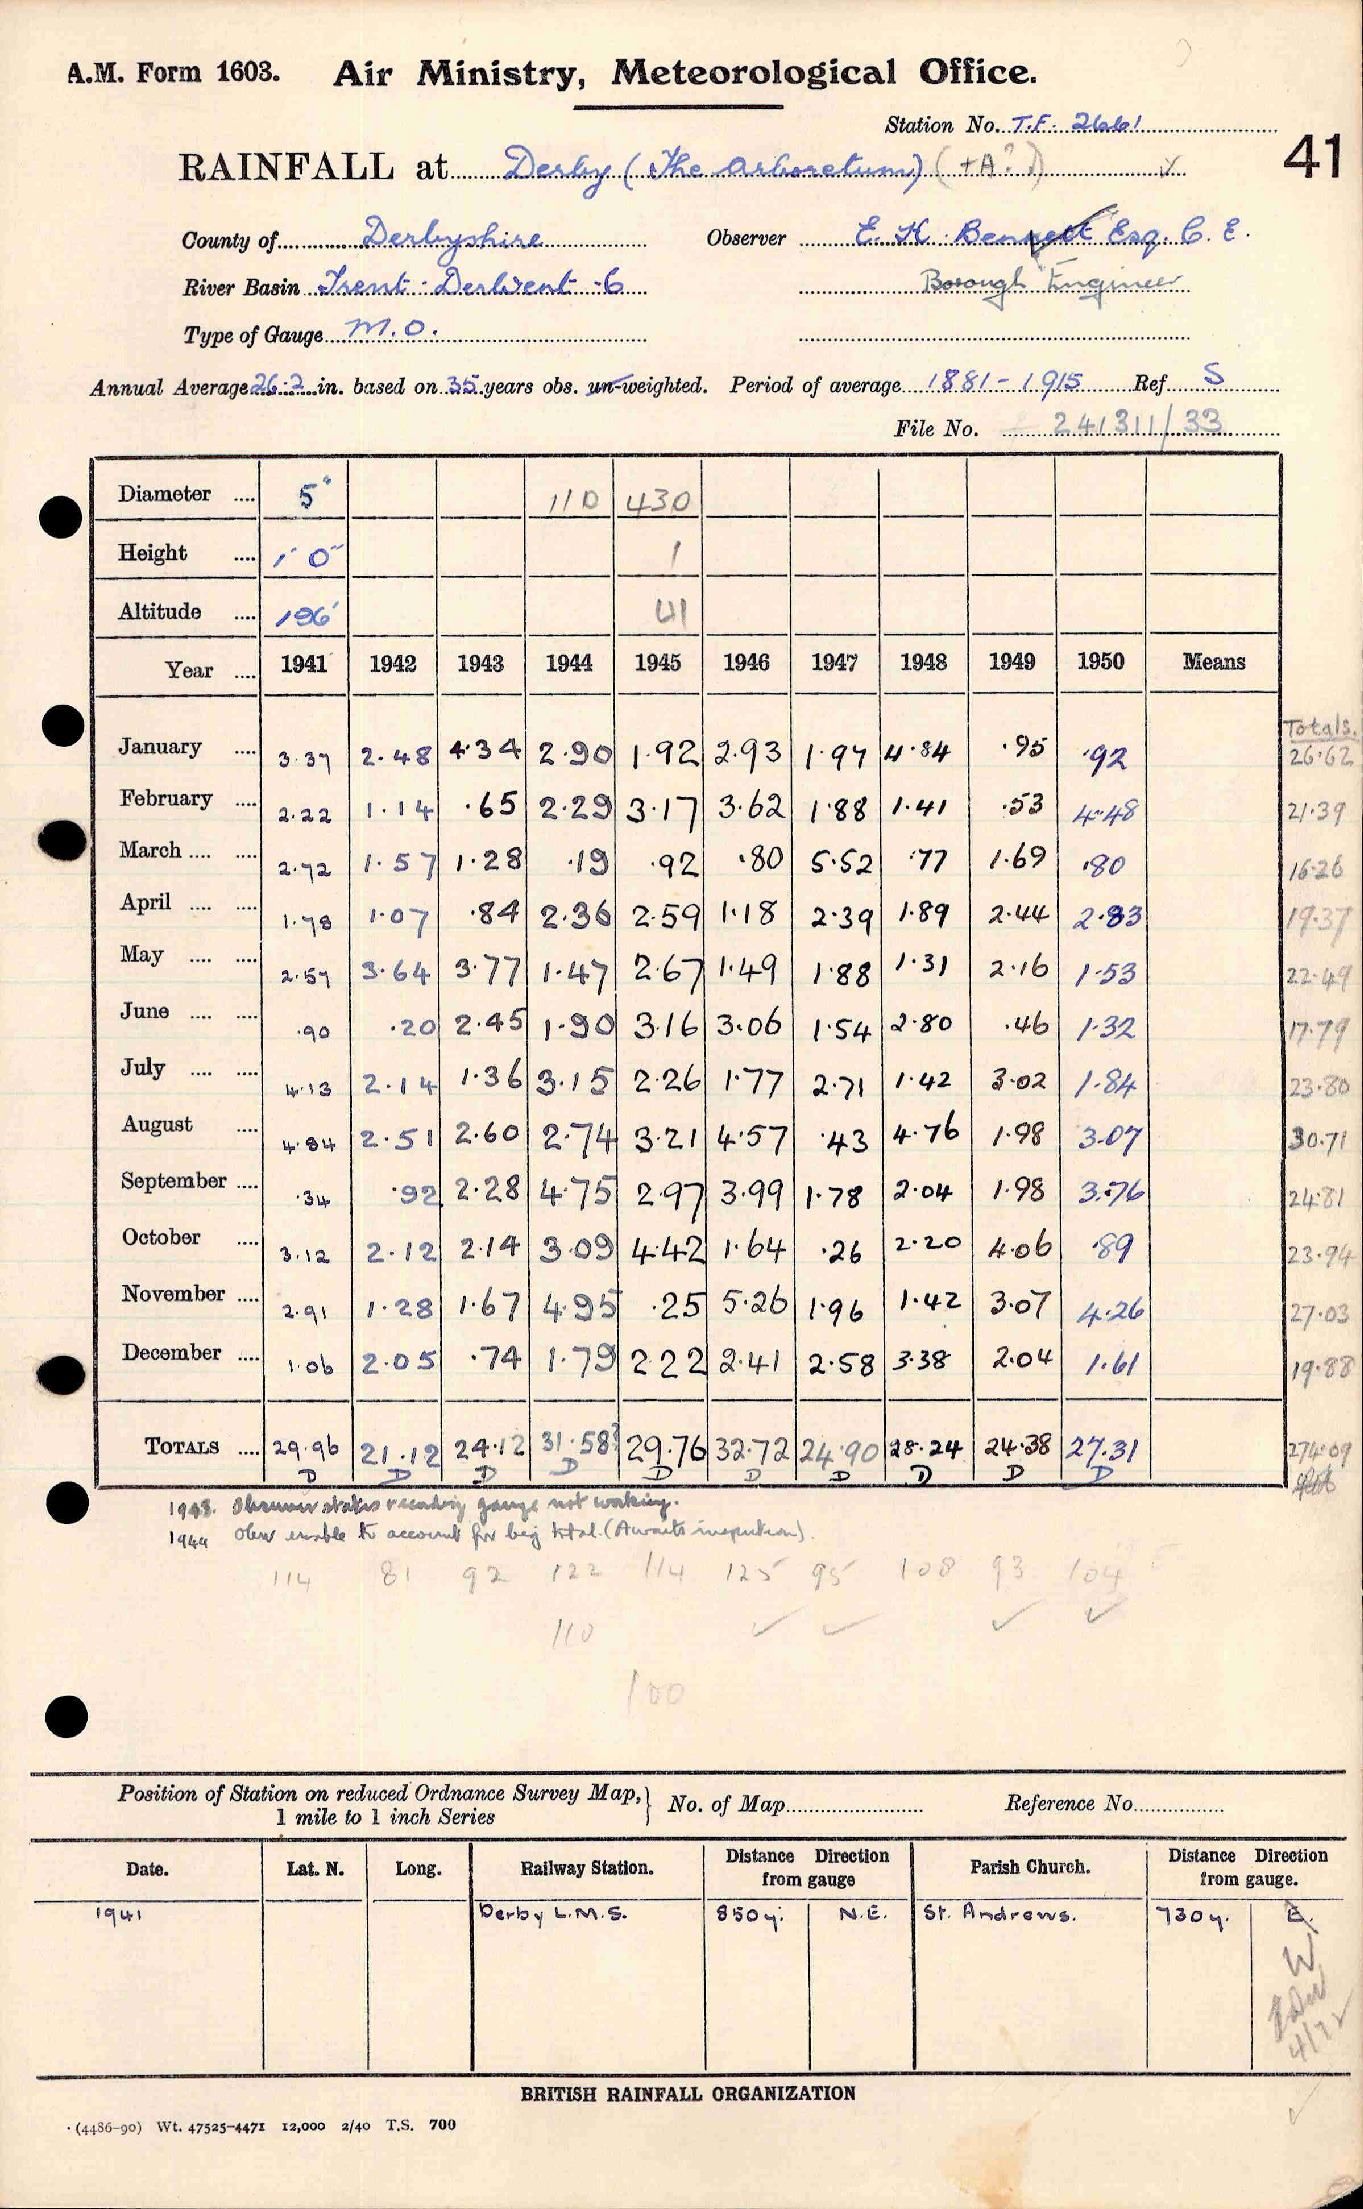 A.M. Form 1603. Air Ministry, Meteorological Office.
Station No. T.F. 2661
41
RAINFALL at Derby (The Arboretum) (+A?)
County of Derbyshire Observer E. H. Bennett Esq. C. E.
River Basin Trent - Derwent - 6 Borough Engineer
Type of Gauge M.O.
Annual Average 26.2 in. based on 35 years obs. un-weighted. Period of average 1881-1915 Ref S
File No. 241311/33
Diameter .... 5" 110 430
Height .... 1' 0" 1
Altitude .... 196' 41
Year .... 1941 1942 1943 1944 1945 1946 1947 1948 1949 1950 Means
Totals.
January .... 3.37 2.48 4.34 2.90 1.92 2.93 1.97 4.84 .95 .92 26.62
February .... 2.22 1.14 .65 2.29 3.17 3.62 1.88 1.41 .53 4.48 21.39
March .... .... 2.72 1.57 1.28 .19 .92 .80 5.52 .77 1.69 .80 16.26
April .... .... 1.78 1.07 .84 2.36 2.59 1.18 2.39 1.89 2.44 2.83 19.37
May .... .... 2.57 3.64 3.77 1.47 2.67 1.49 1.88 1.31 2.16 1.53 22.49
June .... .... .90 .20 2.45 1.90 3.16 3.06 1.54 2.80 .46 1.32 17.79
July .... .... 4.13 2.14 1.36 3.15 2.26 1.77 2.71 1.42 3.02 1.84 23.80
August .... 4.84 2.51 2.60 2.74 3.21 4.57 .43 4.76 1.98 3.07 30.71
September .... .34 .92 2.28 4.75 2.97 3.99 1.78 2.04 1.98 3.76 24.81
October .... 3.12 2.12 2.14 3.09 4.42 1.64 .26 2.20 4.06 .89 23.94
November .... 2.91 1.28 1.67 4.95 .25 5.26 1.96 1.42 3.07 4.26 27.03
December .... 1.06 2.05 .74 1.79 2.22 2.41 2.58 3.38 2.04 1.61 19.88
TOTALS .... 29.96 21.12 24.12 31.58? 29.76 32.72 24.90 28.24 24.38 27.31 274.09
D D D D D D D D D D
1943. Observer states recording gauge not working.
1944 Obsr unable to account for big total. (Awaits inspection).
114 81 92 122 114 125 95 108 93 104
110
100
Position of Station on reduced Ordnance Survey Map, } No. of Map Reference No.
1 mile to 1 inch Series
Date. Lat. N. Long. Railway Station. Distance Direction from gauge Parish Church. Distance Direction from gauge.
1941 Derby L.M.S. 850y. N.E. St. Andrews. 730y. E.
W
4/72
BRITISH RAINFALL ORGANIZATION
(4486-90) Wt. 47525-4471 12,000 2/40 T.S. 700